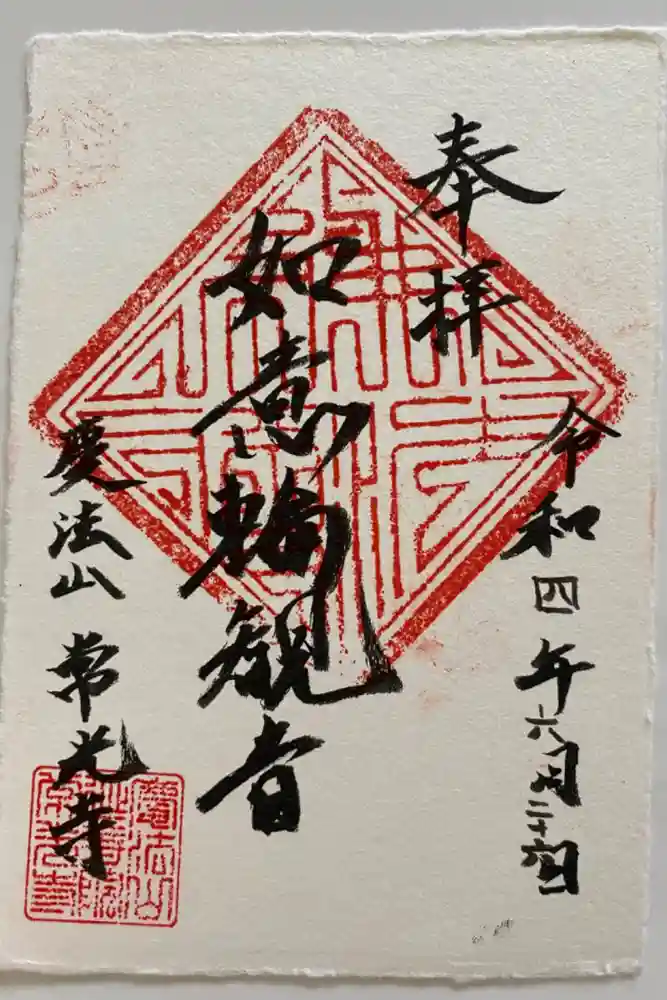 奉拝
令和四年六月二十六日
如意輪観音
慶法山 常光寺
慶法山